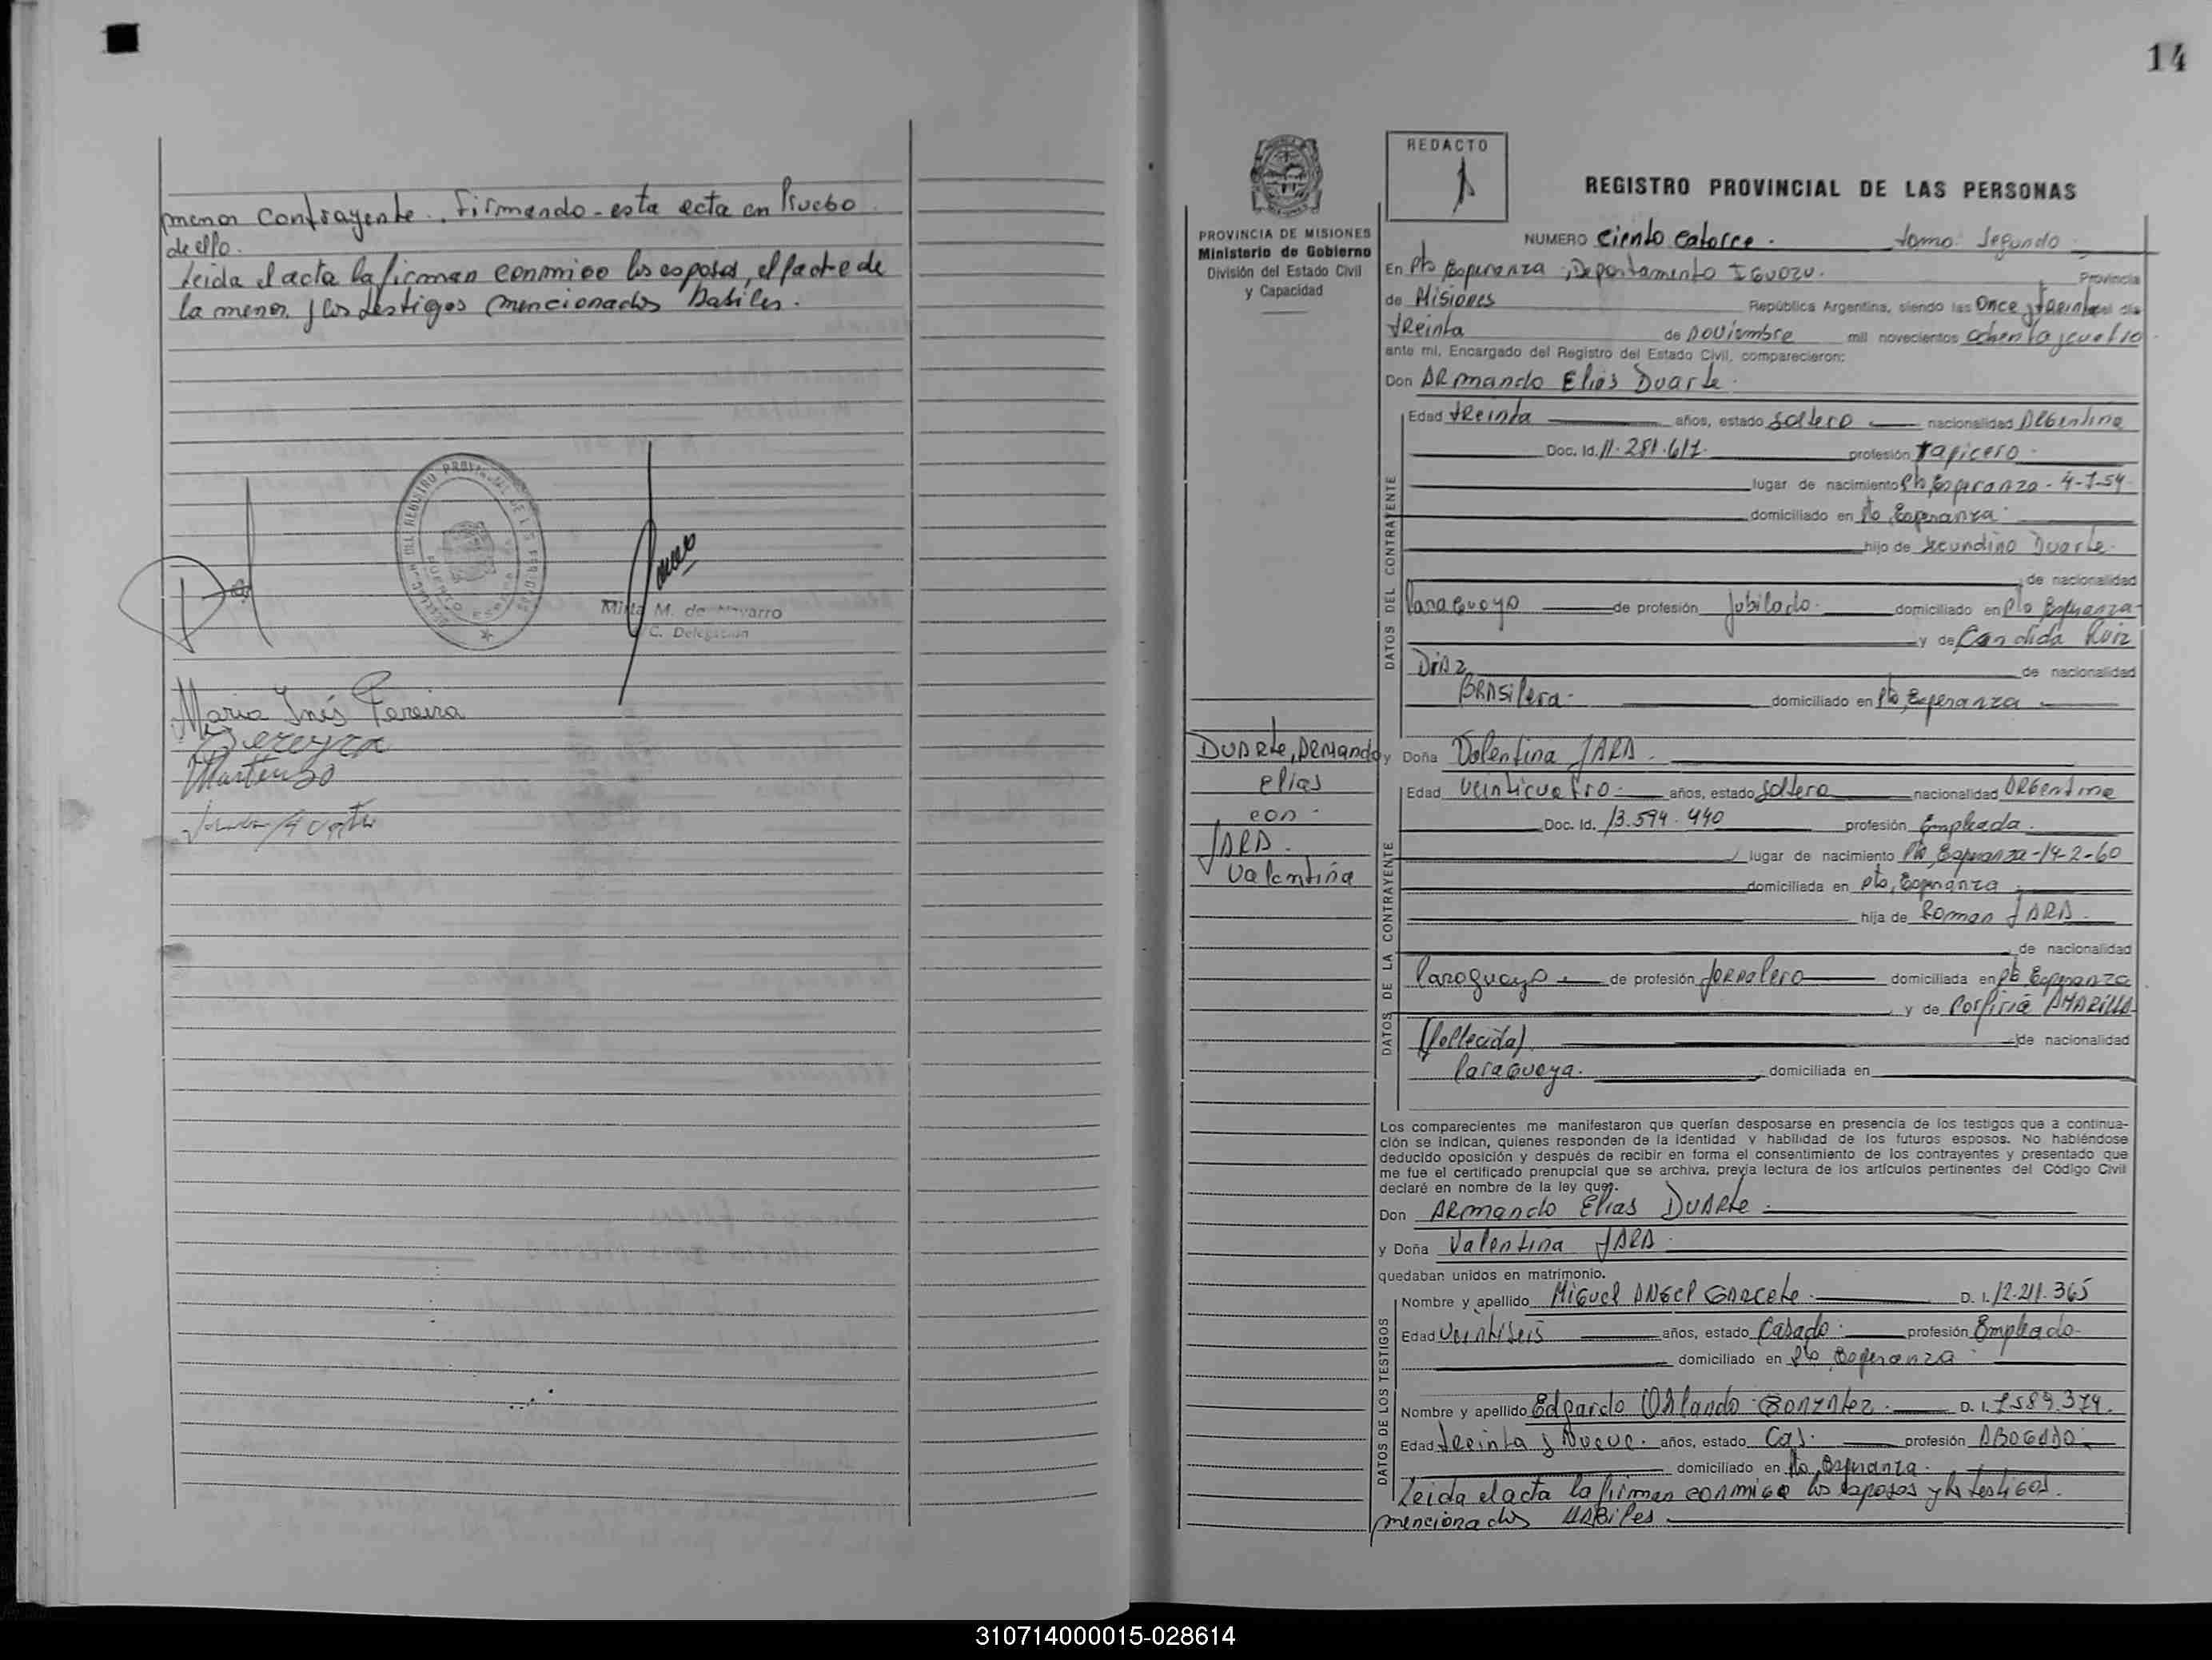 menor contrayente. firmando esta acta en Prueba
de ello.
Leida el acta la firman conmigo los esposos, el padre de
la menor y los testigos mencionados habiles.
Mirta M. de Navarro
C. Delegación
Maria Inés Pereira
Pereyra
14
PROVINCIA DE MISIONES
Ministerio de Gobierno
División del Estado Civil
y Capacidad
REDACTO
REGISTRO PROVINCIAL DE LAS PERSONAS
NUMERO Ciento Catorce. tomo: Segundo
En Pto Esperanza, Departamento IGUAZU. Provincia
de Misiones República Argentina, siendo las Once y treinta del dia
treinta de noviembre mil novecientos ochenta y cuatro
ante mi, Encargado del Registro del Estado Civil, comparecieron:
Don ARmando Elias Duarte.
DATOS DEL CONTRAYENTE
Edad treinta años, estado soltero nacionalidad Argentina
Doc. Id. 11.281.617. profesión tapicero
lugar de nacimiento Pto, Esperanza - 4-7-54
domiciliado en Pto, Esperanza.
hijo de Secundino Duarte.
de nacionalidad
Paraguayo de profesión Jubilado. domiciliado en Pto Esperanza
y de Candida Ruiz
Diaz de nacionalidad
BRasilera. domiciliado en Pto, Esperanza
DUARte, ARMando
Elias
con
JARA.
Valentina
y Doña Valentina JARA.
DATOS DE LA CONTRAYENTE
Edad veinticuatro. años, estado soltera nacionalidad ARGentina
Doc. Id. 13.594.440 profesión Empleada.
lugar de nacimiento Pto, Esperanza-14-2-60
domiciliada en Pto, Esperanza
hija de Roman JARA.
de nacionalidad
Paraguayo de profesión JORNalero domiciliada en Pto Esperanza
y de Porfiria AMARILLA
(fallecida) de nacionalidad
Paraguaya. domiciliada en
Los comparecientes me manifestaron que querían desposarse en presencia de los testigos que a continua-
ción se indican, quienes responden de la identidad y habilidad de los futuros esposos. No habiéndose
deducido oposición y después de recibir en forma el consentimiento de los contrayentes y presentado que
me fue el certificado prenupcial que se archiva, previa lectura de los artículos pertinentes del Código Civil
declaré en nombre de la ley que:
Don ARmando Elias DUARte
y Doña Valentina JARA
quedaban unidos en matrimonio.
DATOS DE LOS TESTIGOS
Nombre y apellido Miguel ANGel GARcete. D. I. 12.211.365
Edad Veintiseis años, estado Casado. profesión Empleado
domiciliado en Pto Esperanza
Nombre y apellido Edgardo ORlando GONZAlez. D. I. 7589.374.
Edad treinta y Nueve. años, estado Cas. profesión ABOGADO
domiciliado en Pto, Esperanza.
Leida el acta la firman conmigo los esposos y los testigos.
mencionados HABiles.
310714000015-028614